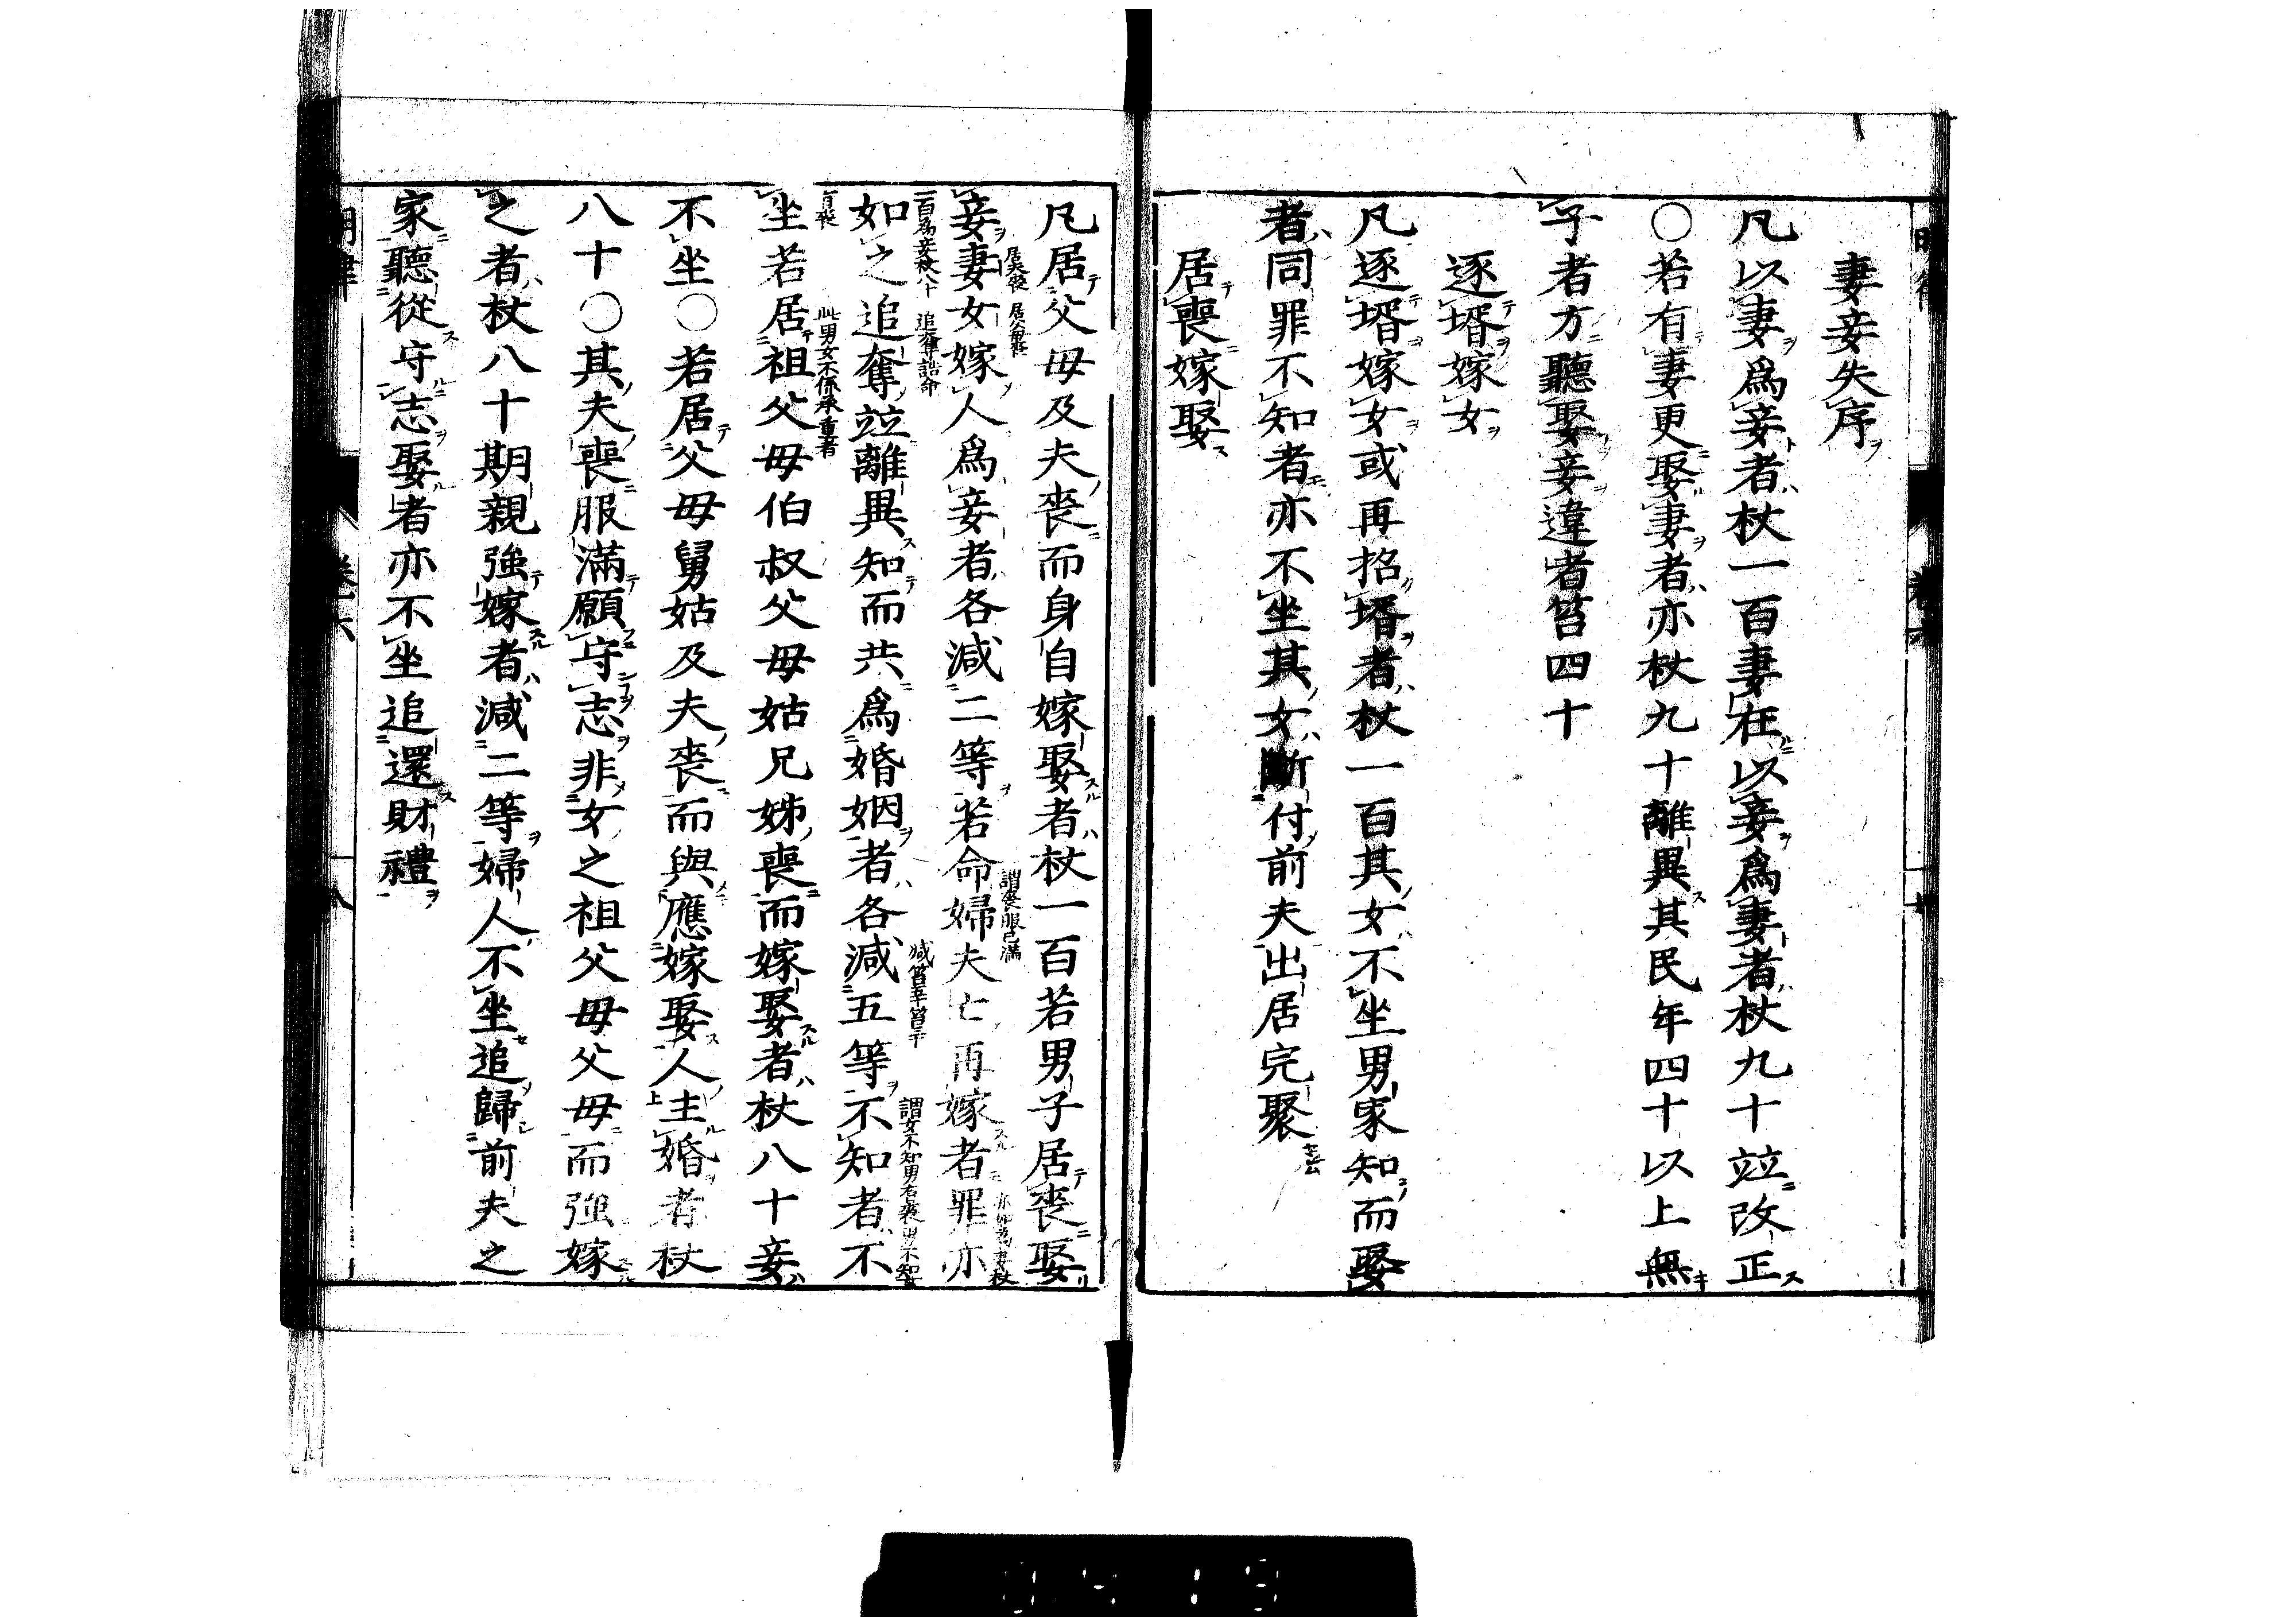 妻妾失序
凡以妻爲妾者杖一百妻在以妾爲妻者杖九十竝改正
〇若有妻更娶妻者亦杖九十離異其民年四十以上無
子者方聽娶妾違者笞四十
逐壻嫁女
凡逐壻嫁女或再招壻者杖一百其女不坐男家知而娶
者同罪不知者亦不坐其女斷付前夫出居完聚
居喪嫁娶
凡居父母及夫喪而身自嫁娶者杖一百若男子居喪娶
妾妻女嫁人爲妾者各減二等若命婦夫亡再嫁者罪亦
如之追奪竝離異知而共爲婚姻者各減五等不知者不
坐若居祖父母伯叔父母姑兄姊喪而嫁娶者杖八十妾
不坐〇若居父母舅姑及夫喪而與應嫁娶人主婚者杖
八十〇其夫喪服滿願守志非女之祖父母父母而強嫁
之者杖八十期親強嫁者減二等婦人不坐追歸前夫之
家聽從守志娶者亦不坐追還財禮